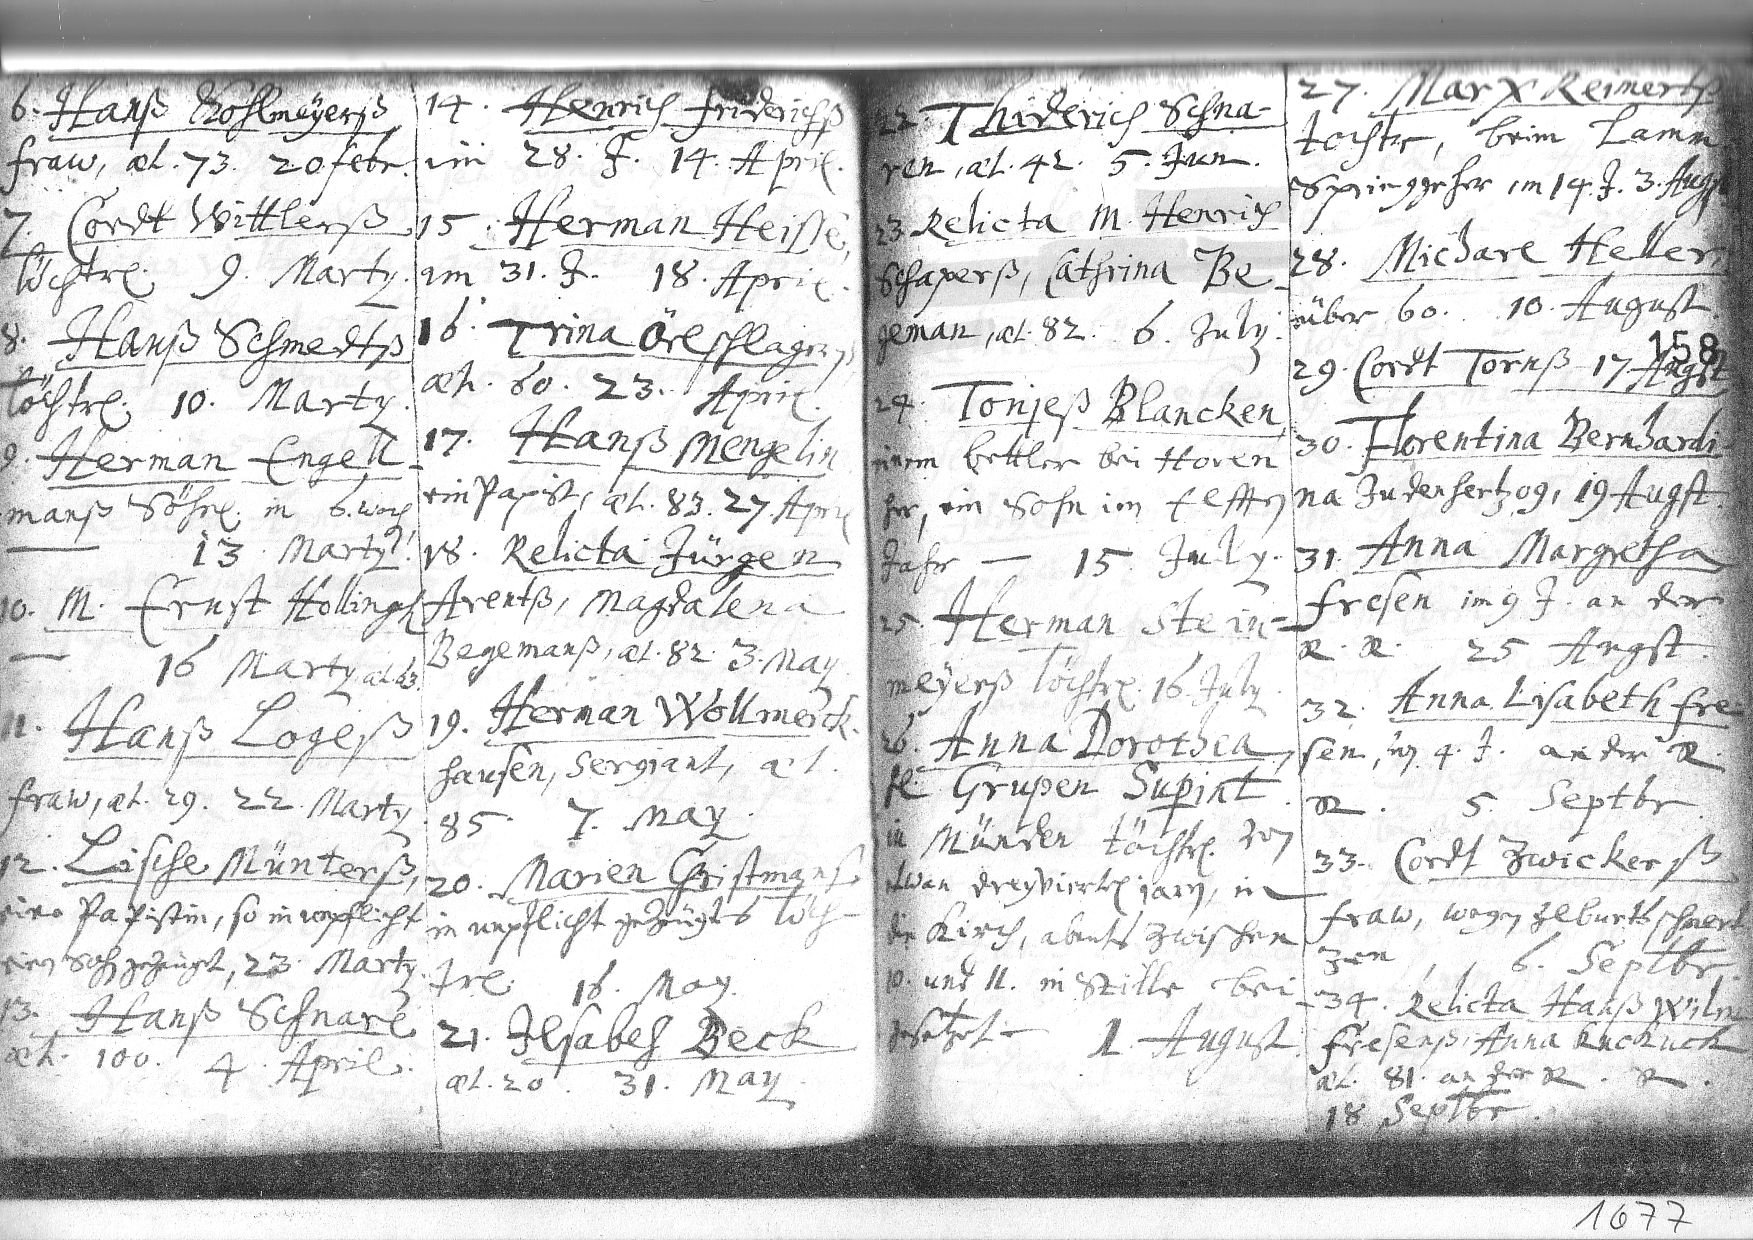 6. Hanß Kohlmeyerß
fraw, æt. 73. 20 febr.
7. Cordt Wittlerß
töchtrl. 9. Marty.
8. Hanß Schmedtß
töchtrl. 10. Marty.
9. Herman Engell-
manß Söhnl. in 6. woch
13. Marty
10. M. Ernst Hollingh
16 Marty æt. 63.
11. Hanß Logeß
fraw, æt. 29. 22 Marty
12. Lische Münterß,
eine Papistin, so in unpflicht
ein gezeuget, 23. Marty.
13. Hanß Schnare
æt. 100. 4 April.
14. Henrich friderichß
im 28. J. 14. April.
15. Herman Heisse,
im 31. J. 18. April.
16. Trina Örlschlagerß
æt. 60. 23. April.
17. Hanß Mengelin
ein Papist, æt. 83. 27 April
18. Relicta Jürgen
Arentß, Magdalena
Begemanß, æt. 82. 3. May
19. Herman Wollmerck-
hausen, Sergiant, æt.
85. 7. May.
20. Marien Christmanß
in unpflicht gezeugtes töch-
trl. 16. May.
21. Ilsabeh Beck
æt. 20. 31. May.
22. Thiderich Schna-
ren, æt. 42. 5. Jun.
23. Relicta M. Henrich
Schaperß, Cathrina Be-
geman, æt. 82. 6. July.
24. Tonjeß Blancken,
einem bettler bei Horen
her, ein Sohn im Elfften
Jahr — 15. July.
25. Herman Stein-
meyerß töchtrl. 16. July
26. Anna Dorothea,
H. Grupen Supint.
in Münden töchtrl. von
etwan dreyviertl jarn, in
die Kirch, abents zwischen
10. und 11. in Stille bei
gesetzet — 1. August.
27. Marx Reimertß
tochter, beim Lamm-
springeher, im 14. J. 3. Augst
28. Michael Heller,
über 60. 10. August.
158
29. Cordt Tornß 17 Augst
30. Florentina Bernhardi-
na Judenhertzog, 19 Augst.
31. Anna Margretha
fresen im 9 J. an der
R. R. 25 Augst.
32. Anna Lisabeth fre-
sen, 4. J. an der R.
R. 5 Septbr
33. Cordt Zwickerß
fraw, wegen geburtsschmert-
zen, 6. Septbr.
34. Relicta Hanß Wilm
fresenß, Anna Kuckuck
æt. 81. an der R. R.
18 Septbr.
1677